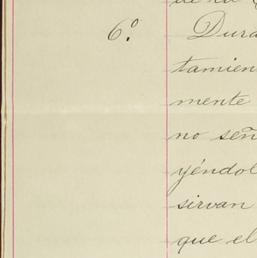 de la
6º. Dura
tamien
mente
no señ
yéndol
sirvan
que el